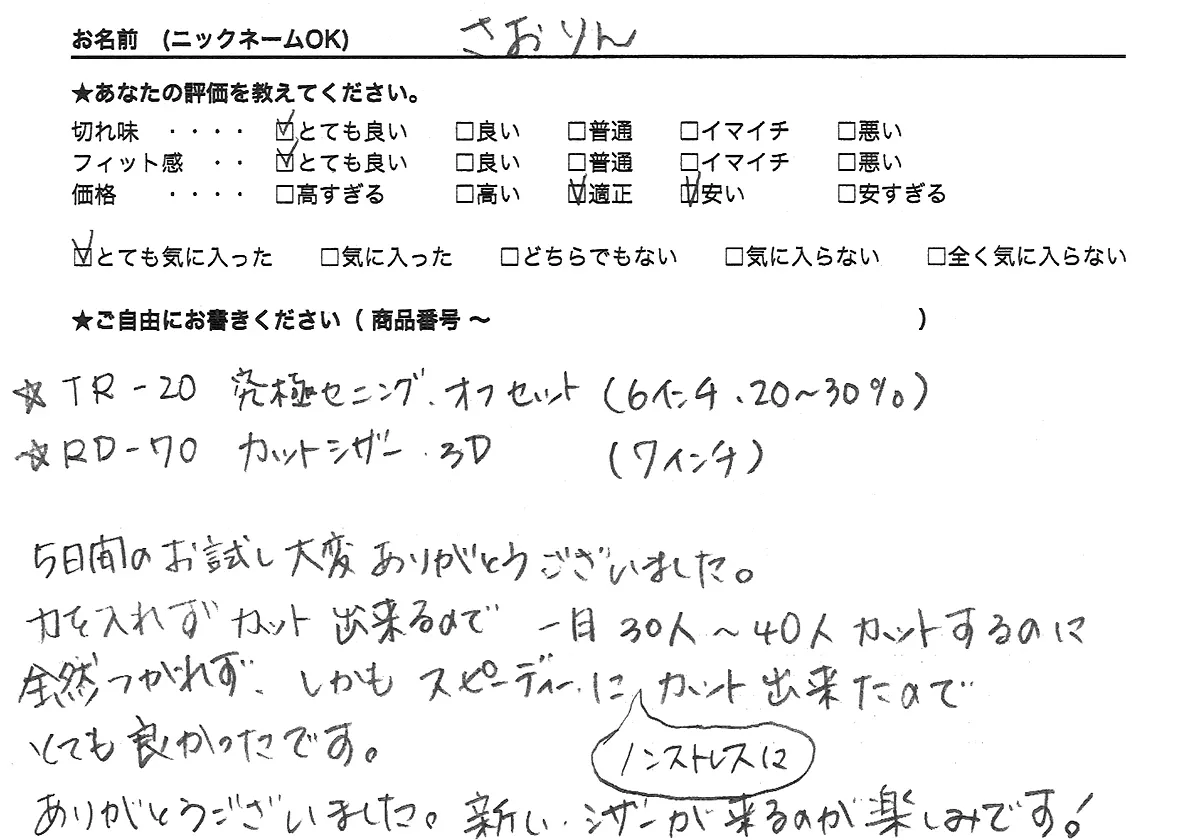 お名前 (ニックネームOK) さおりん
★あなたの評価を教えてください。
切れ味 ・・・・ ☑とても良い □良い □普通 □イマイチ □悪い
フィット感 ・・ ☑とても良い □良い □普通 □イマイチ □悪い
価格 ・・・・ □高すぎる □高い ☑適正 ☑安い □安すぎる
☑とても気に入った □気に入った □どちらでもない □気に入らない □全く気に入らない
★ご自由にお書きください（ 商品番号 〜 ）
☆TR-20 究極セニング、オフセット (6インチ、20〜30%)
☆RD-70 カットシザー 3D (7インチ)
5日間のお試し大変ありがとうございました。
力を入れずカット出来るので 一日30人〜40人カットするのに
全然つかれず、しかもスピーディーに カット出来たので
とても良かったです。
ノンストレスに
ありがとうございました。新しいシザーが来るのが楽しみです!